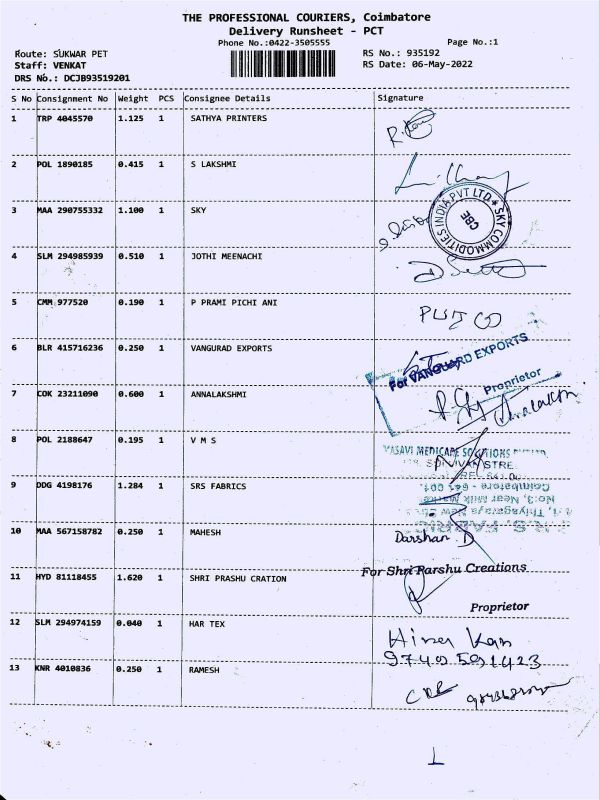 THE PROFESSIONAL COURIERS, Coimbatore
Delivery Runsheet - PCT
Phone No.:0422-3505555 Page No.:1
Route: SUKWAR PET RS No.: 935192
Staff: VENKAT RS Date: 06-May-2022
DRS No.: DCJB93519201
S No Consignment No Weight PCS Consignee Details Signature
1 TRP 4045570 1.125 1 SATHYA PRINTERS
2 POL 1890185 0.415 1 S LAKSHMI
SKY COMMODITIES INDIA PVT LTD
CBE
3 MAA 290755332 1.100 1 SKY
4 SLM 294985939 0.510 1 JOTHI MEENACHI
5 CMM 977520 0.190 1 P PRAMI PICHI ANI
6 BLR 415716236 0.250 1 VANGURAD EXPORTS
For VANGUARD EXPORTS
Proprietor
7 COK 23211090 0.600 1 ANNALAKSHMI
8 POL 2188647 0.195 1 V M S
VASAVI MEDICARE SOLUTIONS
9 DDG 4198176 1.284 1 SRS FABRICS
Coimbatore - 641 001.
No:3, Near Milk Market
Thiyagaraya New Street
10 MAA 567158782 0.250 1 MAHESH
Darshan D
11 HYD 81118455 1.620 1 SHRI PRASHU CRATION
For Shri Parshu Creations
Proprietor
12 SLM 294974159 0.040 1 HAR TEX
9740591423
13 KNR 4010836 0.250 1 RAMESH